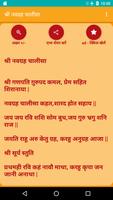 10:00
श्री नवग्रह चालीसा
लाइन +/-
एप्प शेयर करें
ad - विकिल खेलें
श्री नवग्रह चालीसा
श्री गणपति गुरुपद कमल, प्रेम सहित
सिरानाया |
नवग्रह चालीसा कहत,शारद होत सहाय ||
जय जय रवि शशि सोम बुध,जय गुरु भृगु
शनि राज |
जयति राहू अरु केतु ग्रह, करहु अनुग्रह आजा ||
श्री सूर्य स्तुति
प्रथमही रवि कहं नावौ माथा, करहु कृपा जन
जानि अनाथा,